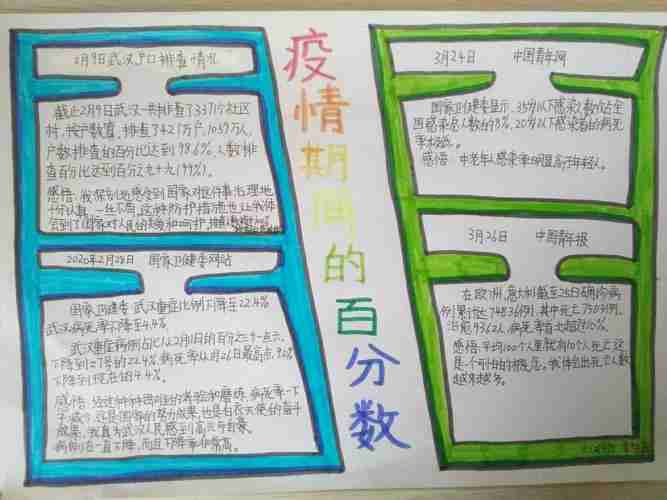 疫情期间的百分数
2月9日武汉户口排查情况
截止2月9日武汉一共排查了3371个社区
村,按户数算,排查了421万户,1059万人,
户数排查的百分比达到98.6%,人数排
查百分比达到百分之九十九(99%)。
感悟:我深刻地感受到国家对这件事
十分认真,一丝不苟,这种防护措施也让我体
会到了国家对人民的
2020年2月28日 国家卫健委网站
国家卫健委:武汉重症比例下降至22.4%
武汉病死率下降至4.4%。
下降到27号的22.4%,病死率从2月26日最高点9.0%
下降到现在的4.4%。
少,这是国家的努力成果,也是白衣天使的奋斗
成果,我真为武汉人民感到高兴与自豪。
病例在一直下降,而且下降率非常高。
3月24日 中国青年网
国家卫健委显示,35岁以下感染人数约占全
国感染总人数的8%,20岁以下感染者的病死
率极低。
感悟:中老年人感染率明显高于年轻人。
3月26日 中国青年报
在欧洲,意大利截至26日确诊病
例累计达74836例,其中死亡7503例,
治愈9362人,病死率首次超过10%。
感悟:平均100个人里就有10个人死亡,这
是一个可怕的概念。我体会出死亡人数
越来越多。